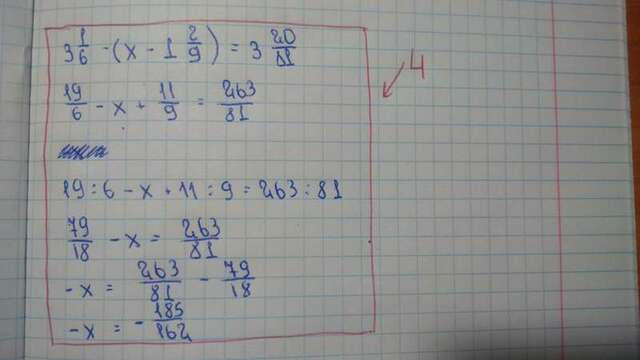 3 1/6 - (x - 1 2/9) = 3 20/81
19/6 - x + 11/9 = 263/81
19 : 6 - x + 11 : 9 = 263 : 81
79/18 - x = 263/81
-x = 263/81 - 79/18
-x = - 185/162
4